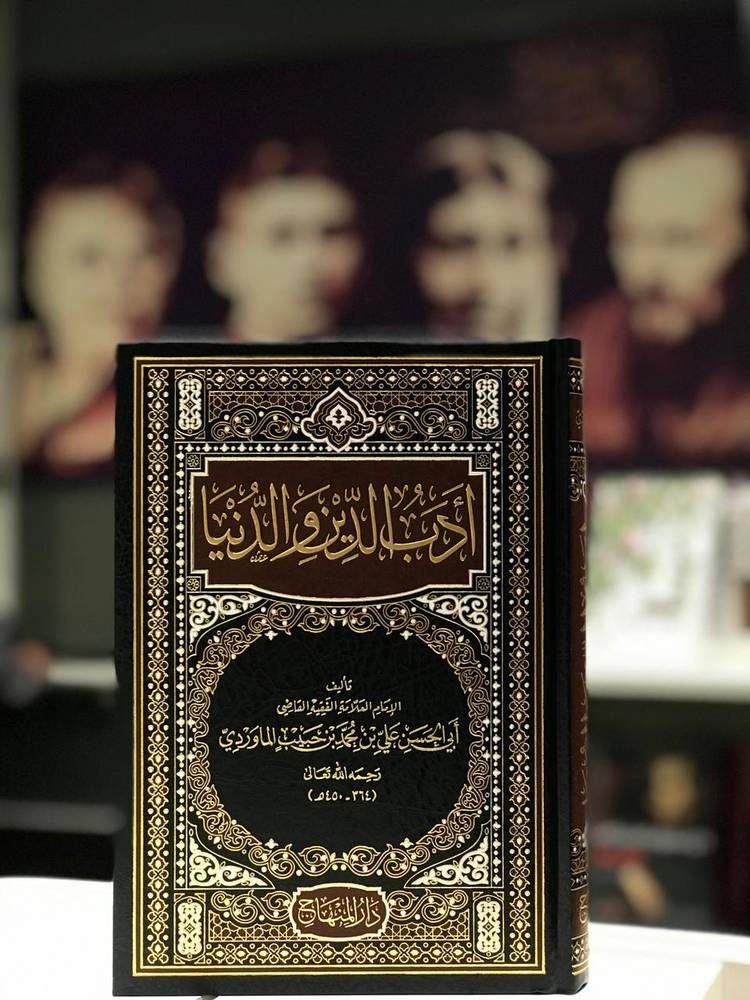 أَدَبُ الدِّيْنِ وَالدُّنْيَا
تأليف
الإمام العلّامة الفقيه القاضي
أبي الحسن علي بن محمد بن حبيب الماوردي
رحمه الله تعالى
(٣٦٤ - ٤٥٠هـ)
دار المنهاج